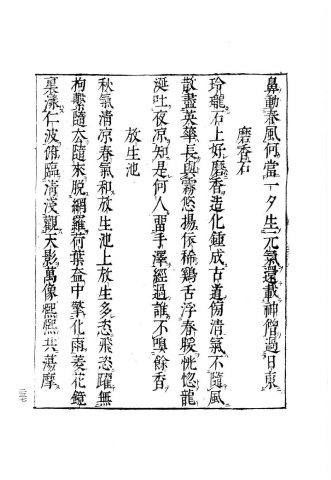 鼻動春風何當一夕生元氣還載神僧過日東
磨香石
玲瓏石上好磨香造化鍾成古道傷清氣不隨風
散盡英華長與霧悠揚依稀鷄舌浮春暖恍惚龍
涎吐夜凉知是何人畱手澤經過誰不嗅餘香
放生池
秋氣清凉春氣和放生池上放生多恣飛恣躍無
拘繫隨去隨來脱網羅荷葉盆中繁化雨菱花鏡
裏漾仁波俯臨清淺觀天影萬像熈熈共蕩摩
二三七